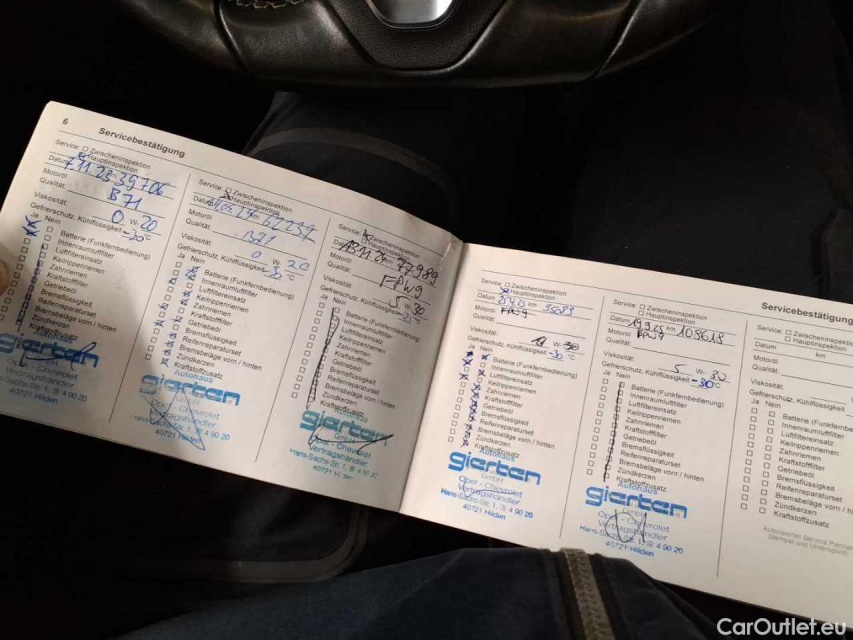 6
Servicebestätigung
Service: Zwischeninspektion
Hauptinspektion
Datum 7.11.23 km 39706
Motoröl
Qualität B71
Viskosität 0 W- 20
Gefrierschutz, Kühlflüssigkeit -30 °C
Ja Nein
Batterie (Funkfernbedienung)
Innenraumluftfilter
Luftfiltereinsatz
Keilrippenriemen
Zahnriemen
Kraftstofffilter
Getriebeöl
Bremsflüssigkeit
Reifenreparaturset
Bremsbeläge vorn / hinten
Zündkerzen
Kraftstoffzusatz
gierten
Opel - Chevrolet
Vertragshändler
Hans-Sachs-Str. 1, 4 90 20
40721 Hilden
Service: Zwischeninspektion
Hauptinspektion
Datum km 62237
Motoröl
Qualität B71
Viskosität 0 W- 20
Gefrierschutz, Kühlflüssigkeit °C
Ja Nein
Batterie (Funkfernbedienung)
Innenraumluftfilter
Luftfiltereinsatz
Keilrippenriemen
Zahnriemen
Kraftstofffilter
Getriebeöl
Bremsflüssigkeit
Reifenreparaturset
Bremsbeläge vorn / hinten
Zündkerzen
Kraftstoffzusatz
Autohaus
gierten
GmbH
Opel - Chevrolet
Vertragshändler
Hans-Sachs-Str. 1, 4 90 20
40721 Hilden
Service: Zwischeninspektion
Hauptinspektion
Datum km 77989
Motoröl
Qualität
Viskosität 5 W- 30
Gefrierschutz, Kühlflüssigkeit °C
Ja Nein
Batterie (Funkfernbedienung)
Innenraumluftfilter
Luftfiltereinsatz
Keilrippenriemen
Zahnriemen
Kraftstofffilter
Getriebeöl
Bremsflüssigkeit
Reifenreparaturset
Bremsbeläge vorn / hinten
Zündkerzen
Kraftstoffzusatz
Autohaus
gierten
Opel - Chevrolet
Vertragshändler
Hans-Sachs-Str. 1, 4 90 20
40721 Hilden
Service: Zwischeninspektion
Hauptinspektion
Datum km
Motoröl
Qualität
Viskosität W- 30
Gefrierschutz, Kühlflüssigkeit -30 °C
Ja Nein
Batterie (Funkfernbedienung)
Innenraumluftfilter
Luftfiltereinsatz
Keilrippenriemen
Zahnriemen
Kraftstofffilter
Getriebeöl
Bremsflüssigkeit
Reifenreparaturset
Bremsbeläge vorn / hinten
Zündkerzen
Kraftstoffzusatz
Autohaus
gierten
GmbH
Opel - Chevrolet
Vertragshändler
Hans-Sachs-Str. 1, 4 90 20
40721 Hilden
Servicebestätigung
Service: Zwischeninspektion
Hauptinspektion
Datum 19.9.25 km 108618
Motoröl
Qualität
Viskosität 5 W- 30
Gefrierschutz, Kühlflüssigkeit -30 °C
Ja Nein
Batterie (Funkfernbedienung)
Innenraumluftfilter
Luftfiltereinsatz
Keilrippenriemen
Zahnriemen
Kraftstofffilter
Getriebeöl
Bremsflüssigkeit
Reifenreparaturset
Bremsbeläge vorn / hinten
Zündkerzen
Kraftstoffzusatz
Autohaus
gierten
Opel - Chevrolet
Vertragshändler
Hans-Sachs-Str. 1, 4 90 20
40721 Hilden
Service: Zwischeninspektion
Hauptinspektion
Datum km
Motoröl
Qualität
Viskosität W-
Gefrierschutz, Kühlflüssigkeit
Ja Nein
Batterie (Funkfernbedienung)
Innenraumluftfilter
Luftfiltereinsatz
Keilrippenriemen
Zahnriemen
Kraftstofffilter
Getriebeöl
Bremsflüssigkeit
Reifenreparaturset
Bremsbeläge vorn /
Zündkerzen
Kraftstoffzusatz
Autorisierter Service Partner
Stempel und Unterschrift
CarOutlet.eu